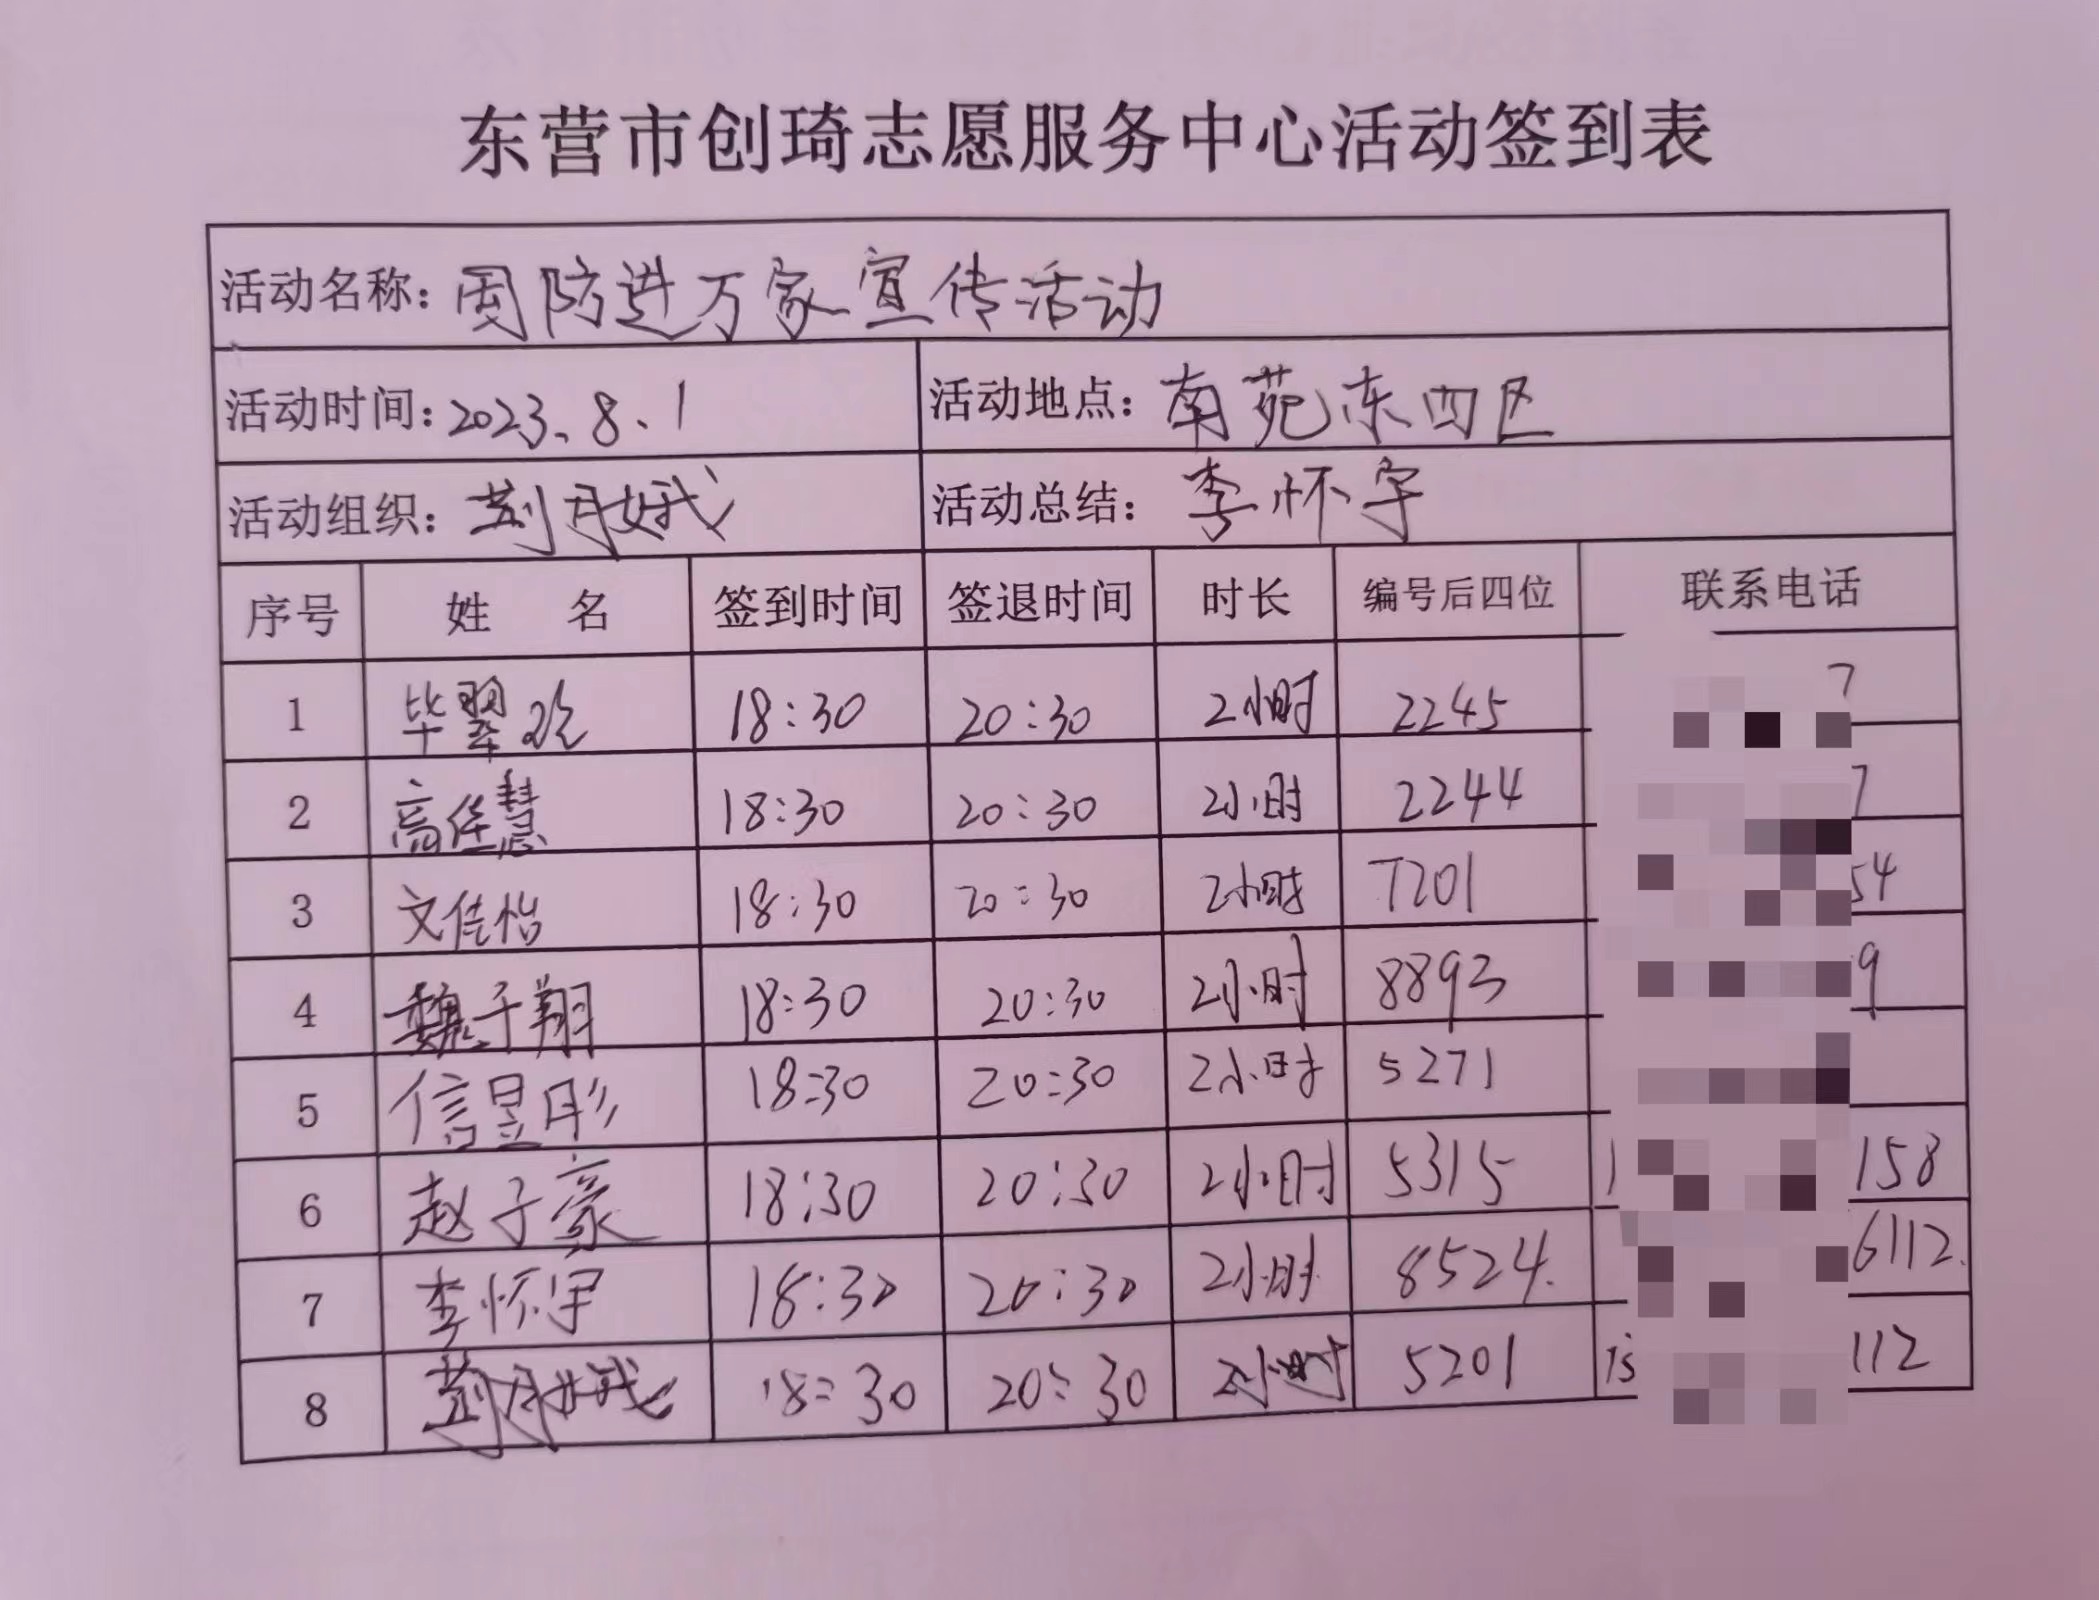 东营市创琦志愿服务中心活动签到表
活动名称：国防进万家宣传活动
活动时间：2023.8.1 活动地点：南苑东四区
活动组织：荆月娥 活动总结：李怀宇
序号 姓 名 签到时间 签退时间 时长 编号后四位 联系电话
1 毕翠欣 18:30 20:30 2小时 2245 7
2 高佳慧 18:30 20:30 2小时 2244 7
3 文佳怡 18:30 20:30 2小时 7201 54
4 魏子翔 18:30 20:30 2小时 8893 9
5 信昱彤 18:30 20:30 2小时 5271
6 赵子豪 18:30 20:30 2小时 5315 1 158
7 李怀宇 18:30 20:30 2小时 8524. 6112.
8 荆月娥 18:30 20:30 2小时 5201 15 112